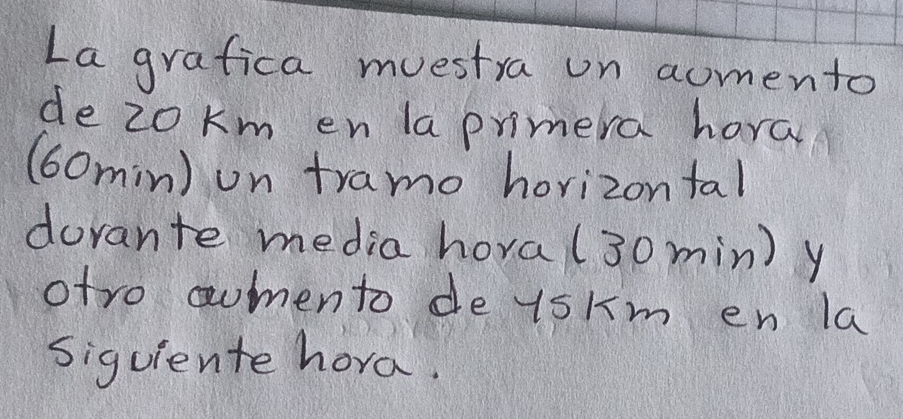 La grafica muestra un aumento
de 20 Km en la primera hora
(60min) un tramo horizontal
durante media hora (30 min) y
otro aumento de 15 Km en la
siguiente hora.